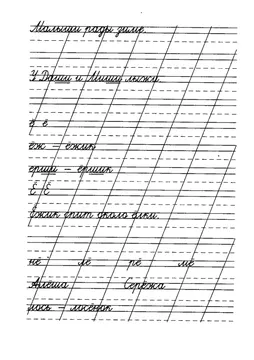 Малыши рады зиме.
У Даши и Миши лыжи.
ё ё
ёж – ёжик
ерши – ёршик
Ё Ё
Ёжик спит около ёлки.
нё лё рё мё
Алёша Серёжа
лось – лосёнок